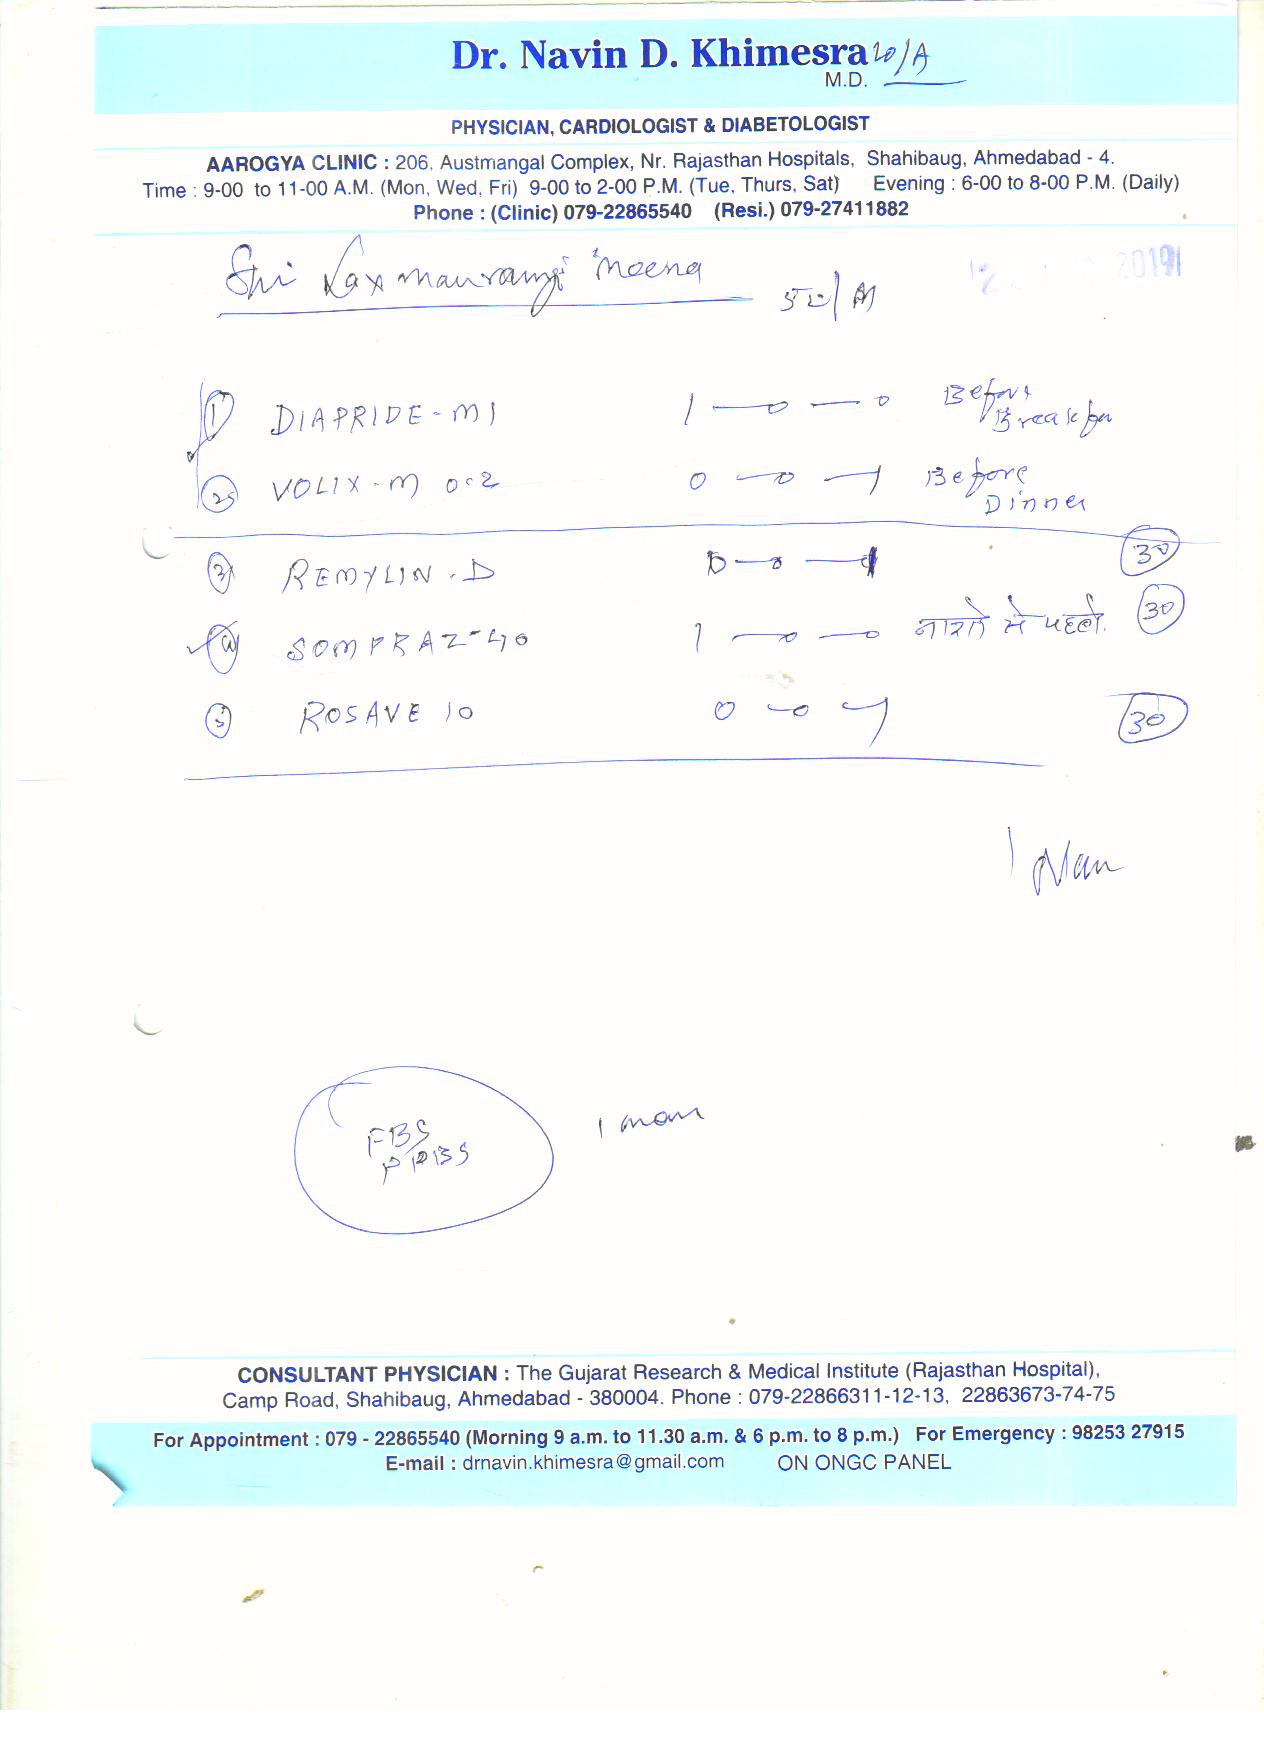 Dr. Navin D. Khimesra
M.D.
PHYSICIAN, CARDIOLOGIST & DIABETOLOGIST
AAROGYA CLINIC : 206, Austmangal Complex, Nr. Rajasthan Hospitals, Shahibaug, Ahmedabad - 4.
Time : 9-00 to 11-00 A.M. (Mon, Wed, Fri) 9-00 to 2-00 P.M. (Tue, Thurs, Sat) Evening : 6-00 to 8-00 P.M. (Daily)
Phone : (Clinic) 079-22865540 (Resi.) 079-27411882
Shri Laxmanramji Meena
2019
1 DIAPRIDE-M1 1 — 0 — 0 Before
2 VOLIX-M 0.2 0 — 0 — 1 Before
Dinner
3 REMYLIN.D 0 — 0 — 1 30
4 SOMPRAZ-40 1 — 0 — 0 नाश्ते से पहले. 30
5 ROSAVE 10 0 — 0 — 1 30
FBS
PPBS
CONSULTANT PHYSICIAN : The Gujarat Research & Medical Institute (Rajasthan Hospital),
Camp Road, Shahibaug, Ahmedabad - 380004. Phone : 079-22866311-12-13, 22863673-74-75
For Appointment : 079 - 22865540 (Morning 9 a.m. to 11.30 a.m. & 6 p.m. to 8 p.m.) For Emergency : 98253 27915
E-mail : drnavin.khimesra@gmail.com ON ONGC PANEL